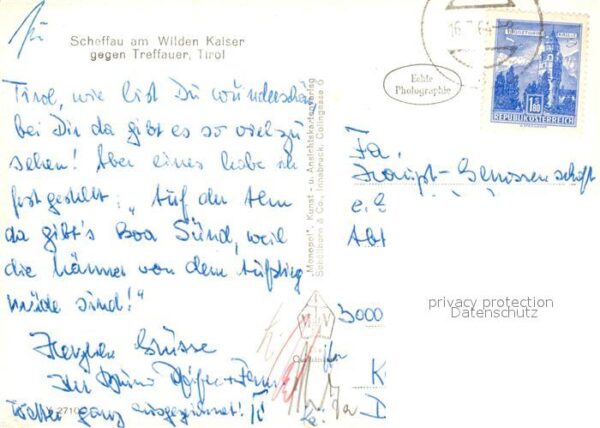 Scheffau am Wilden Kaiser
gegen Treffauer, Tirol
Tirol, wie bist Du wunderschön
bei Dir da gibt es so viel zu
sehen! Aber eines habe ich
festgestellt: „Auf der Alm
da gibt's koa Sünd, weil
die Männer von dem Aufstieg
müde sind!"
Herzliche Grüsse
Wetter ganz ausgezeichnet!
"Monopol", Kunst- u. Ansichtskartenverlag
Schöllhorn & Co., Innsbruck, Collingasse
Echte
Photographie
16. 7. 64
1.80
REPUBLIK ÖSTERREICH
Fa.
Haupt-Genossenschaft
Abt
3000
M V
privacy protection
Datenschutz